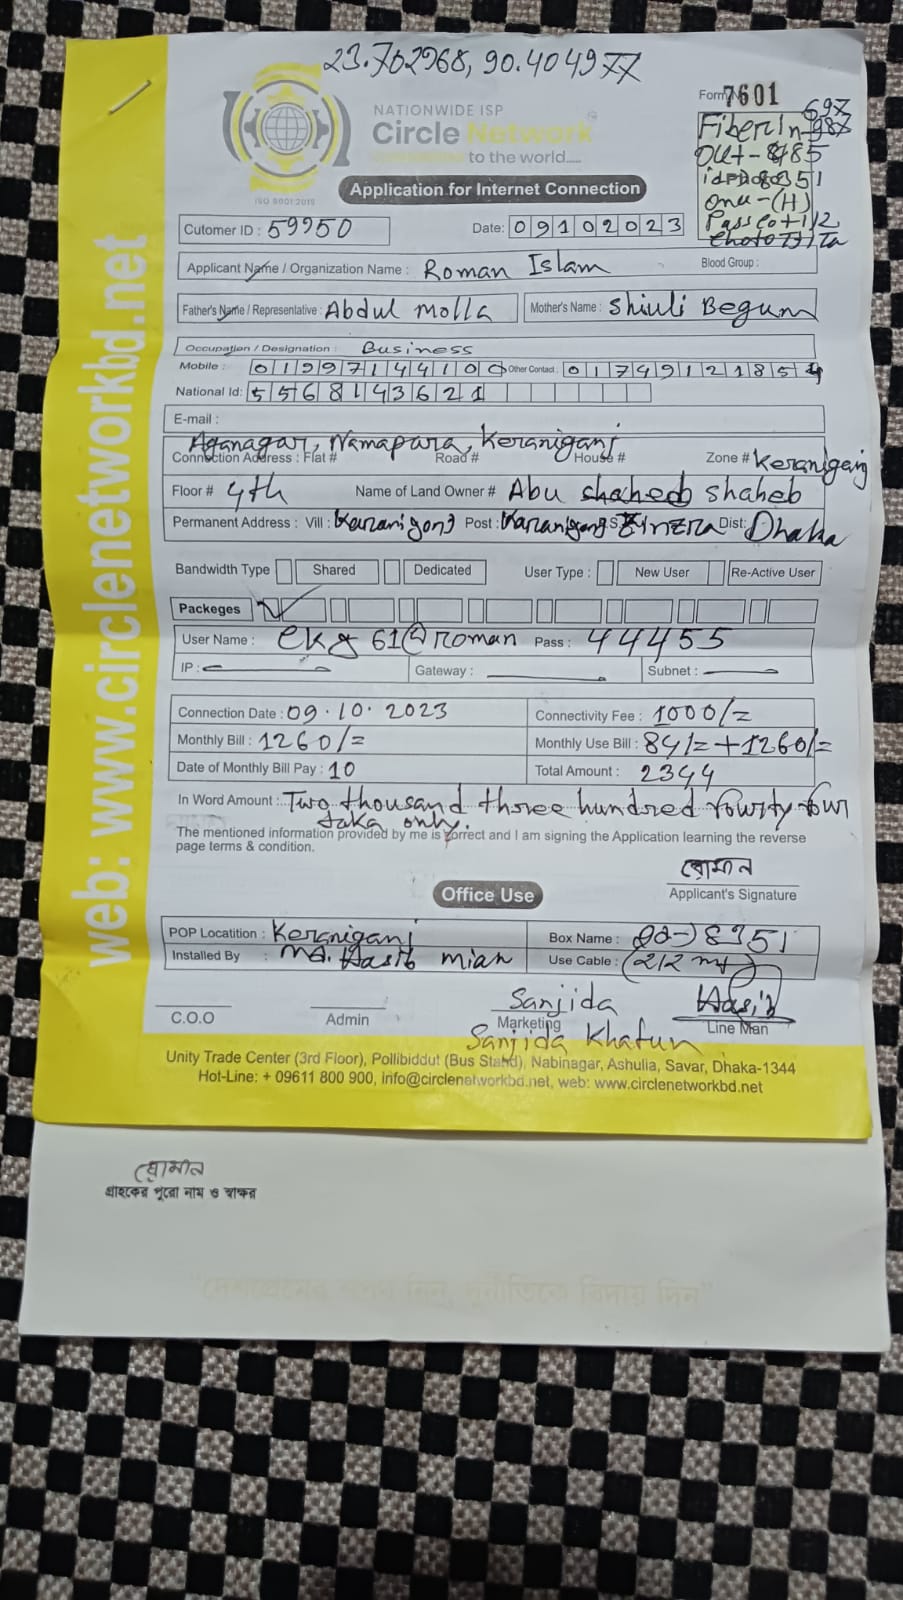 23.702968, 90.404977
NATIONWIDE ISP
Circle Network
to the world.....
ISO 9001:2015
Form 7601
697
FiberIn-987
Out-8785
Onu-(H)
Application for Internet Connection
Cutomer ID : 59950
Date: 09102023
Applicant Name / Organization Name : Roman Islam
Blood Group :
Father's Name / Representative : Abdul Molla
Mother's Name : Shiuli Begum
Occupation / Designation : Business
Mobile : 01997144100 Other Contact : 01749121854
National Id: 5568143621
E-mail :
Aganagar, Namapara, Keraniganj
Connection Address : Flat # Road # House # Zone # Keraniganj
Floor # 4th Name of Land Owner # Abu shaheb shaheb
Permanent Address : Vill : Karanigonj Post : Karanigong P.S. Zinzra Dist: Dhaka
Bandwidth Type Shared Dedicated User Type : New User Re-Active User
Packeges
User Name : ekg 61@roman Pass : 44455
IP : Gateway : Subnet :
Connection Date : 09.10.2023 Connectivity Fee : 1000/=
Monthly Bill : 1260/= Monthly Use Bill : 84/=+1260/=
Date of Monthly Bill Pay : 10 Total Amount : 2344
In Word Amount :.. Two thousand three hundred fourty four
taka only.
The mentioned information provided by me is correct and I am signing the Application learning the reverse
page terms & condition.
রোমান
Applicant's Signature
Office Use
POP Locatition : Keraniganj Box Name : 8951
Installed By : Md. Hasib mian Use Cable : (212 m)
Sanjida Hasib
C.O.O Admin Marketing Line Man
Sanjida Khatun
Unity Trade Center (3rd Floor), Pollibiddut (Bus Stand), Nabinagar, Ashulia, Savar, Dhaka-1344
Hot-Line: + 09611 800 900, info@circlenetworkbd.net, web: www.circlenetworkbd.net
web: www.circlenetworkbd.net
রোমান
গ্রাহকের পুরো নাম ও স্বাক্ষর
"দেশপ্রেমের শপথ নিন, দুর্নীতিকে বিদায় দিন"